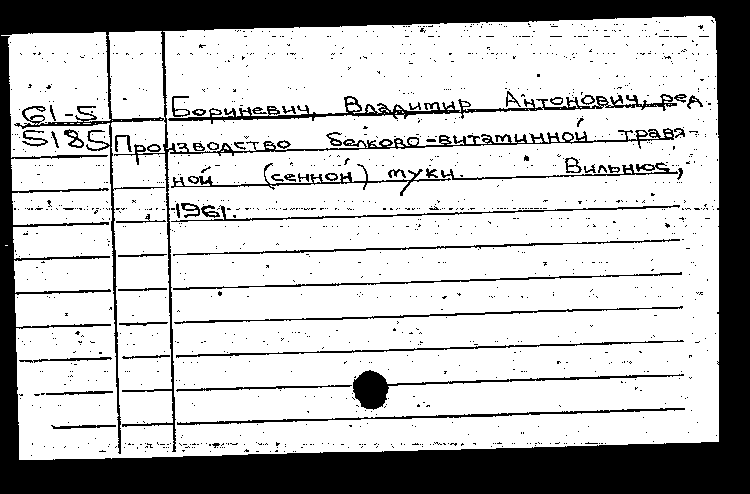 61-5 Бориневич, Владимир Антонович, ред.
5185 Производство белково-витаминной травя-
ной (сенной) муки. Вильнюс,
1961.